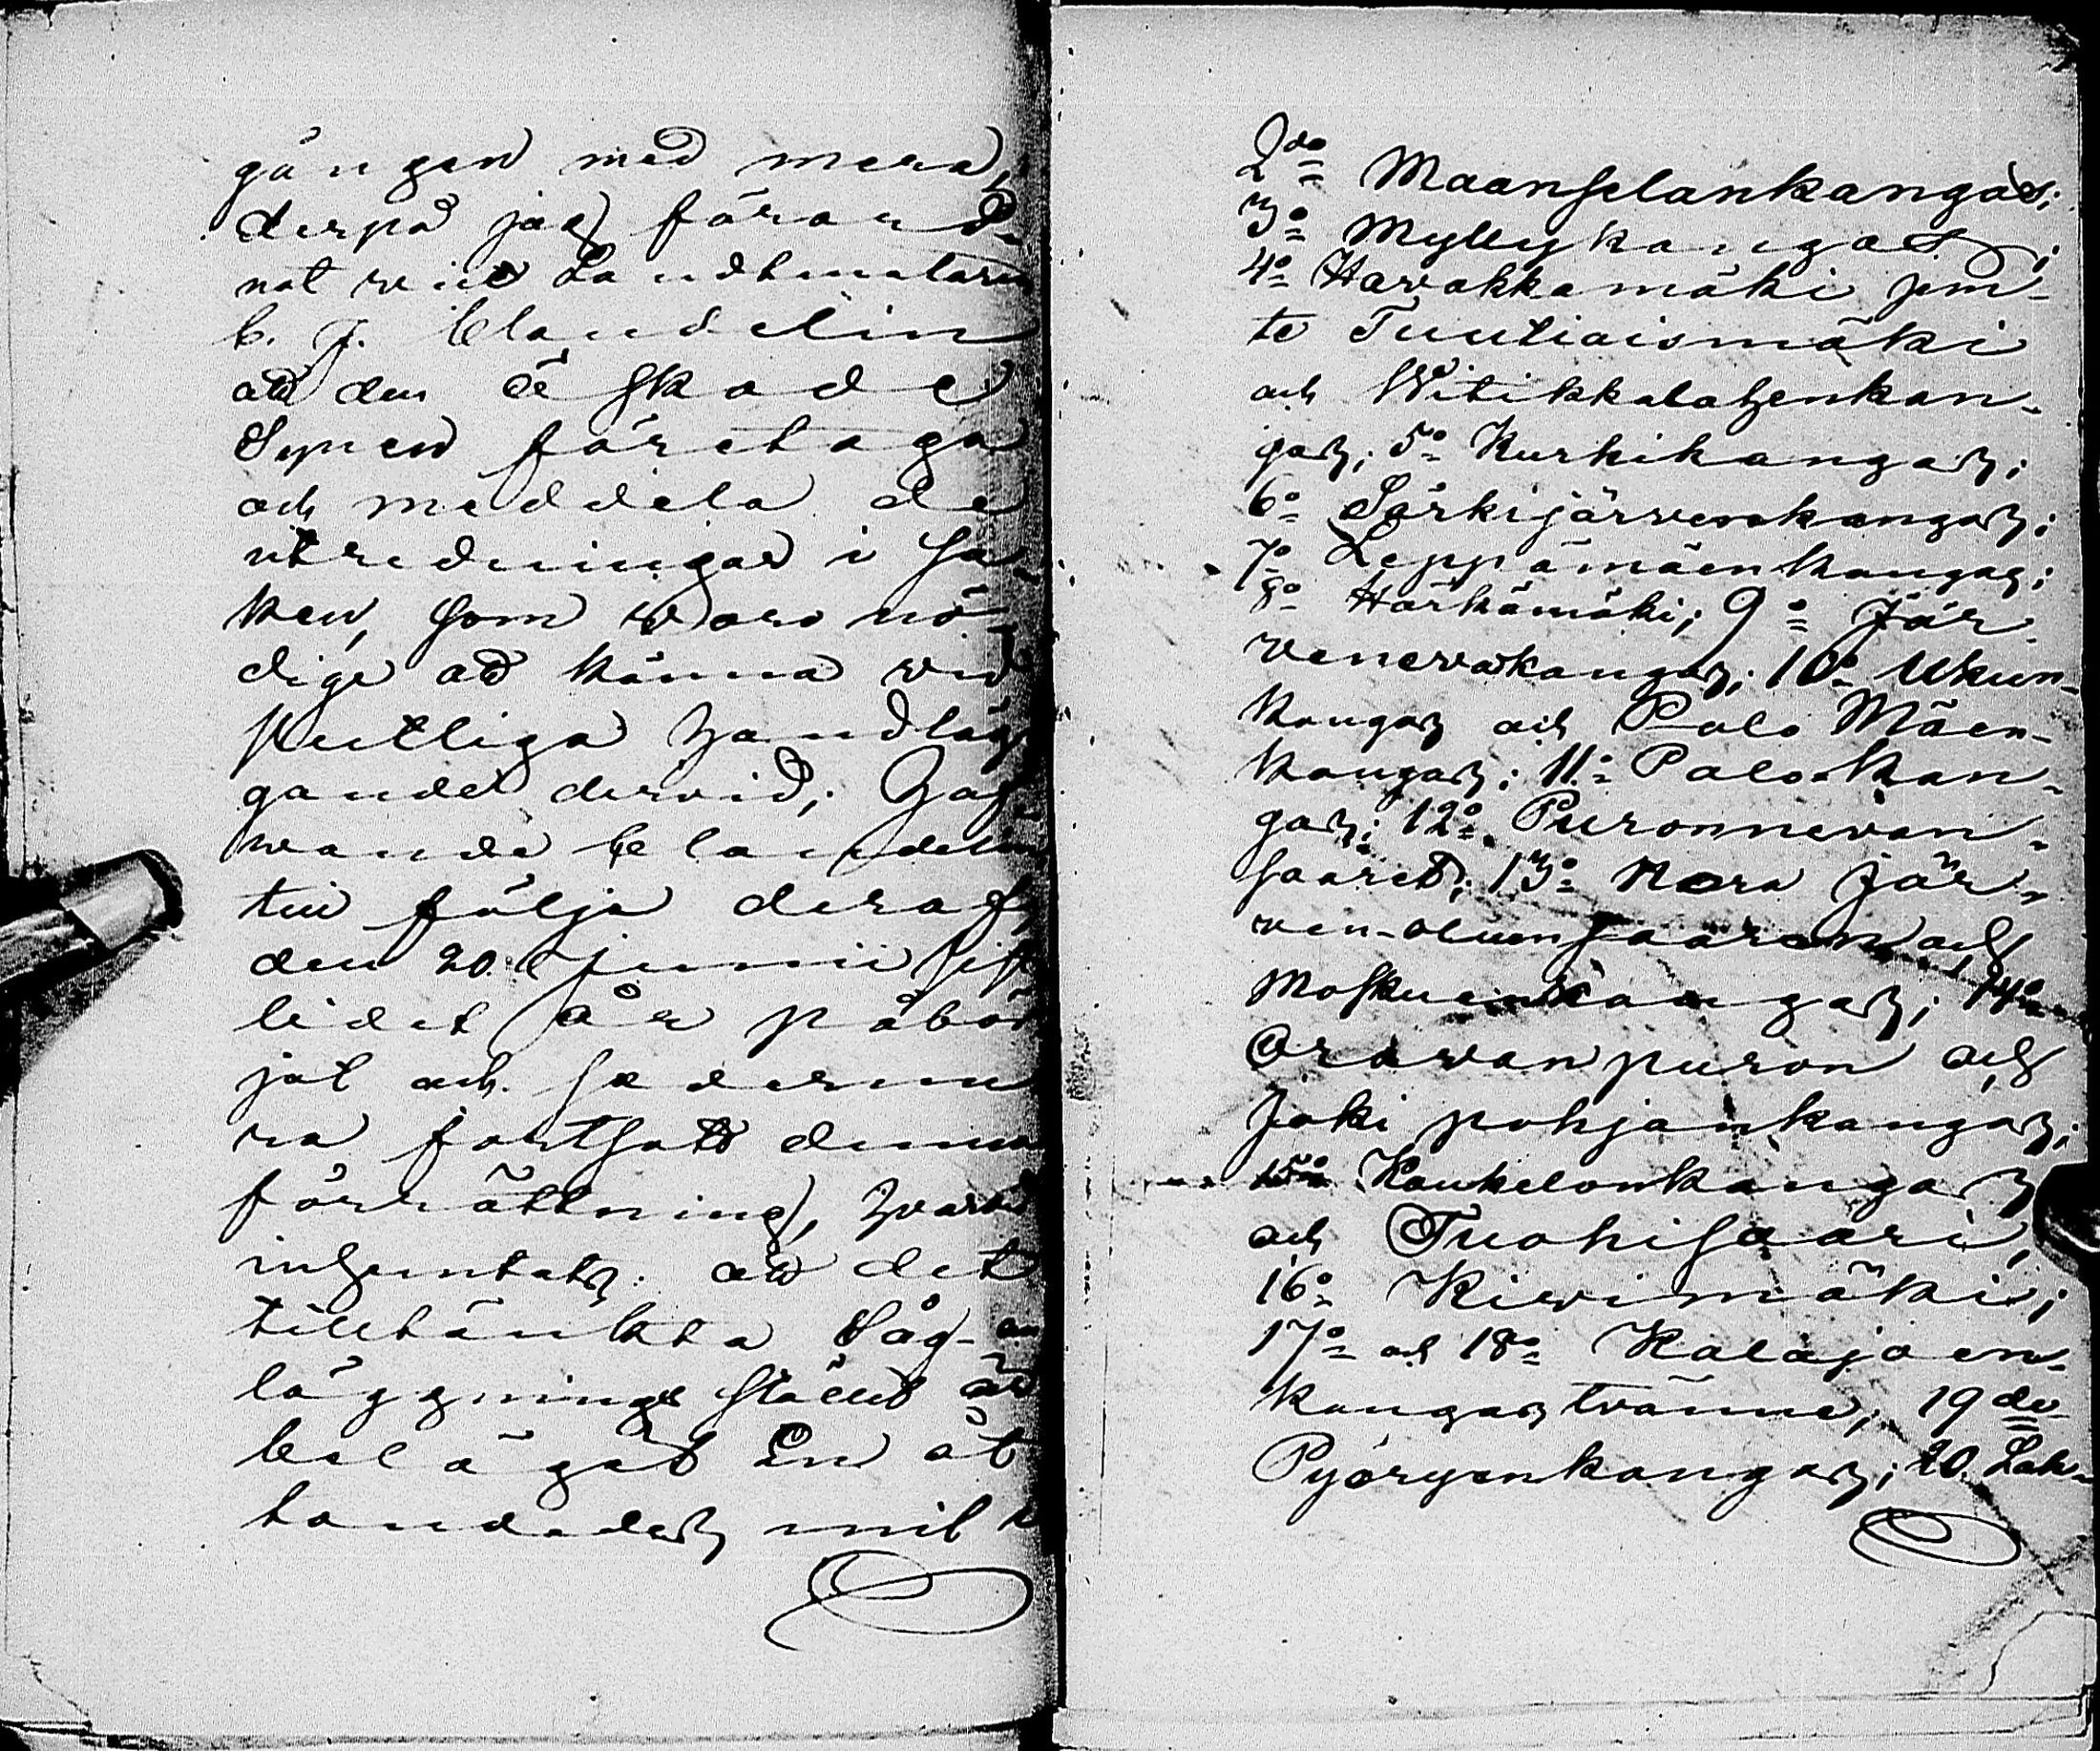 gången med mera,
derpå jag förord-
nat vice Landtmätaren
C. J. Claudelin
att den äskade
Synen företaga
och meddela de
utredningar i sa-
ken, som woro nö-
dige att känna vid
slutliga handläg-
gandet dervid; Hag-
wande Claudelin
till följe deraf,
den 20 Junii sist-
lidet år påbör
jat och sedermera
ra fortsatt denna
förrättning, hvarvid
inhemtats: att det
tilltänkta Såg-an
läggnings stället är
beläget En åt
tondedels mil
2do Maanselankangas;
3o Myllykangas;
4o Harakkamäki jem-
te Tuuliaismäki
och Witikkalahenkan-
gas; 5o Kurkikangas;
6o Särkijärvenkangas;
7o Leppämäenkangas;
8o Härkämäki; 9o Jär-
venevakangas; 10o Ukun-
kangas och Palo Mäen-
kangas; 11o Palo-kan-
gas; 12o Puronnevan-
saaret; 13o Kora Jär-
ven-oluen saaren och
Moskuankangas; 14o
Oravanpuron och
Joki pohjankangas;
15o Koukelonkangas
och Tuohisaari,
16o Kivimäki;
17o och 18o Kalajoen-
kangas tvänne; 19de
Pyöryenkangas; 20 Lak-